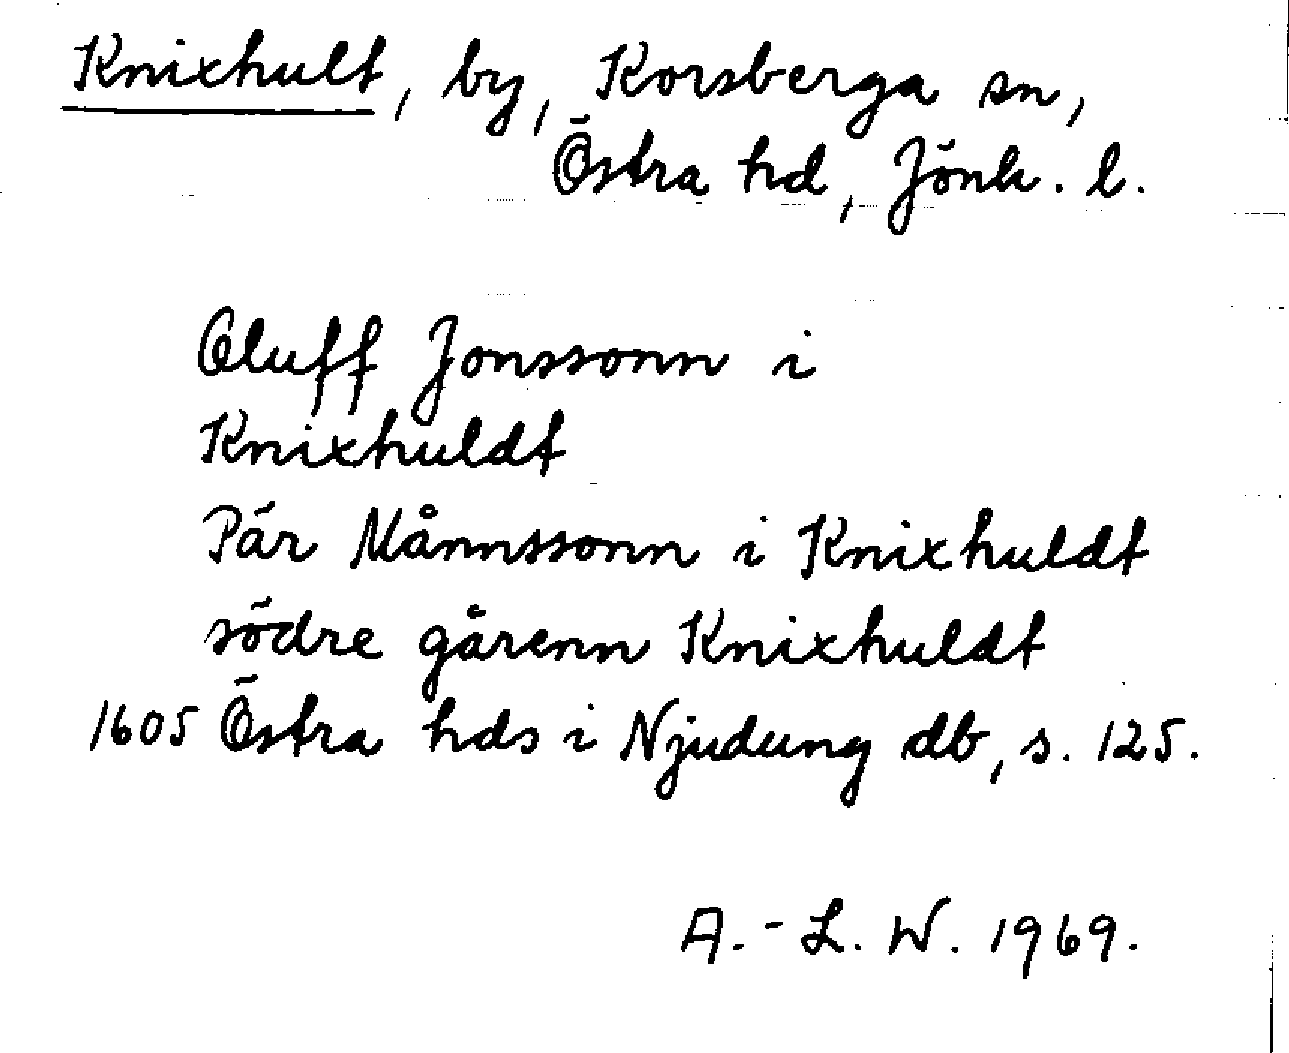 Knixhult, by, Korsberga sn,
Östra hd, Jönk. l.
Oluff Jonssonn i
Knixhuldt
Pär Månnssonn i Knixhuldt
södre gårenn Knixhuldt
1605 Östra hds i Njudung db, s. 125.
A.-L. W. 1969.